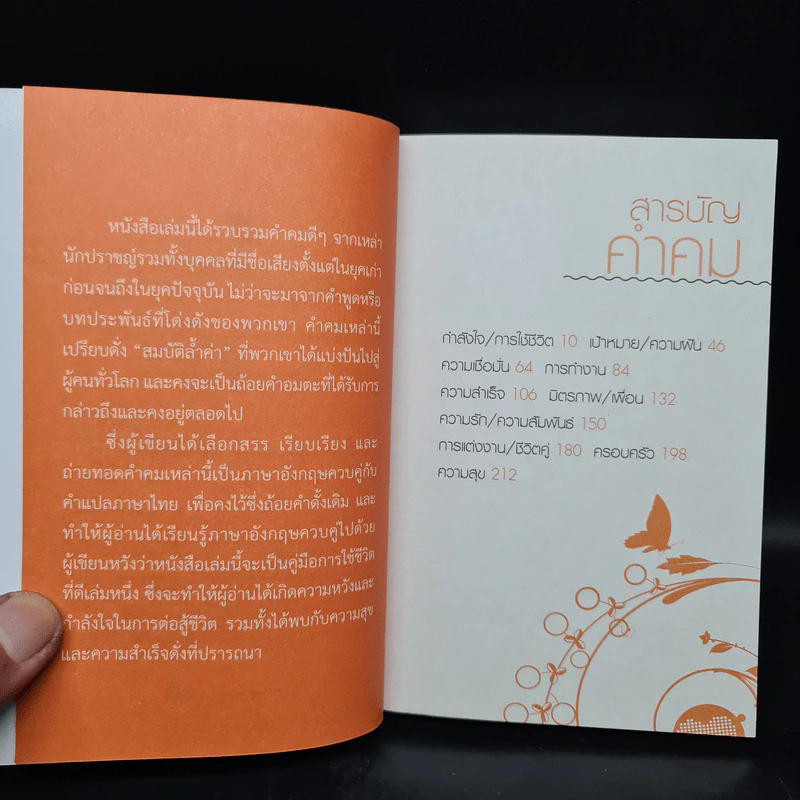 หนังสือเล่มนี้ได้รวบรวมคำคมดีๆ จากเหล่า
นักปราชญ์รวมทั้งบุคคลที่มีชื่อเสียงตั้งแต่ในยุคเก่า
ก่อนจนถึงในยุคปัจจุบัน ไม่ว่าจะมาจากคำพูดหรือ
บทประพันธ์ที่โด่งดังของพวกเขา คำคมเหล่านี้
เปรียบดั่ง “สมบัติล้ำค่า” ที่พวกเขาได้แบ่งปันไปสู่
ผู้คนทั่วโลก และคงจะเป็นถ้อยคำอมตะที่ได้รับการ
กล่าวถึงและคงอยู่ตลอดไป
ซึ่งผู้เขียนได้เลือกสรร เรียบเรียง และ
ถ่ายทอดคำคมเหล่านี้เป็นภาษาอังกฤษควบคู่กับ
คำแปลภาษาไทย เพื่อคงไว้ซึ่งถ้อยคำดั้งเดิม และ
ทำให้ผู้อ่านได้เรียนรู้ภาษาอังกฤษควบคู่ไปด้วย
ผู้เขียนหวังว่าหนังสือเล่มนี้จะเป็นคู่มือการใช้ชีวิต
ที่ดีเล่มหนึ่ง ซึ่งจะทำให้ผู้อ่านได้เกิดความหวังและ
กำลังใจในการต่อสู้ชีวิต รวมทั้งได้พบกับความสุข
และความสำเร็จดั่งที่ปรารถนา
สารบัญ
คำคม
กำลังใจ/การใช้ชีวิต 10 เป้าหมาย/ความฝัน 46
ความเชื่อมั่น 64 การทำงาน 84
ความสำเร็จ 106 มิตรภาพ/เพื่อน 132
ความรัก/ความสัมพันธ์ 150
การแต่งงาน/ชีวิตคู่ 180 ครอบครัว 198
ความสุข 212